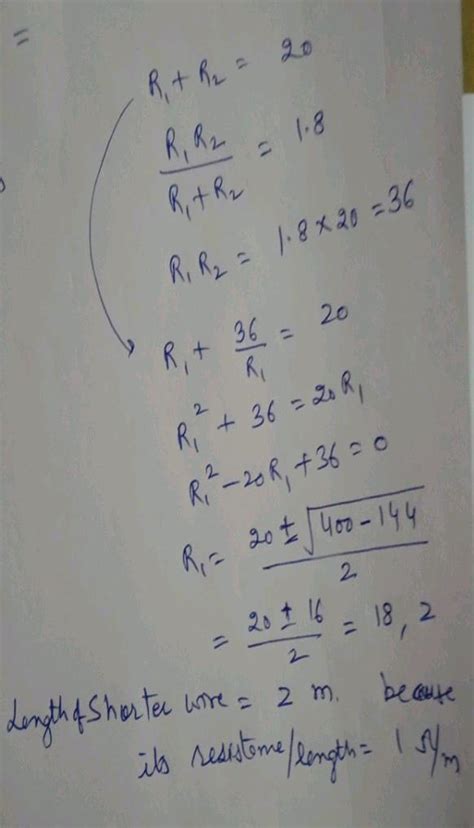 =
R₁ + R₂ = 20
R₁R₂ / (R₁ + R₂) = 1.8
R₁R₂ = 1.8 × 20 = 36
R₁ + 36/R₁ = 20
R₁² + 36 = 20R₁
R₁² - 20R₁ + 36 = 0
R₁ = (20 ± √(400 - 144)) / 2
= (20 ± 16) / 2 = 18, 2
Length of Shorter wire = 2 m. because
its resistome/length = 1 Ω/m